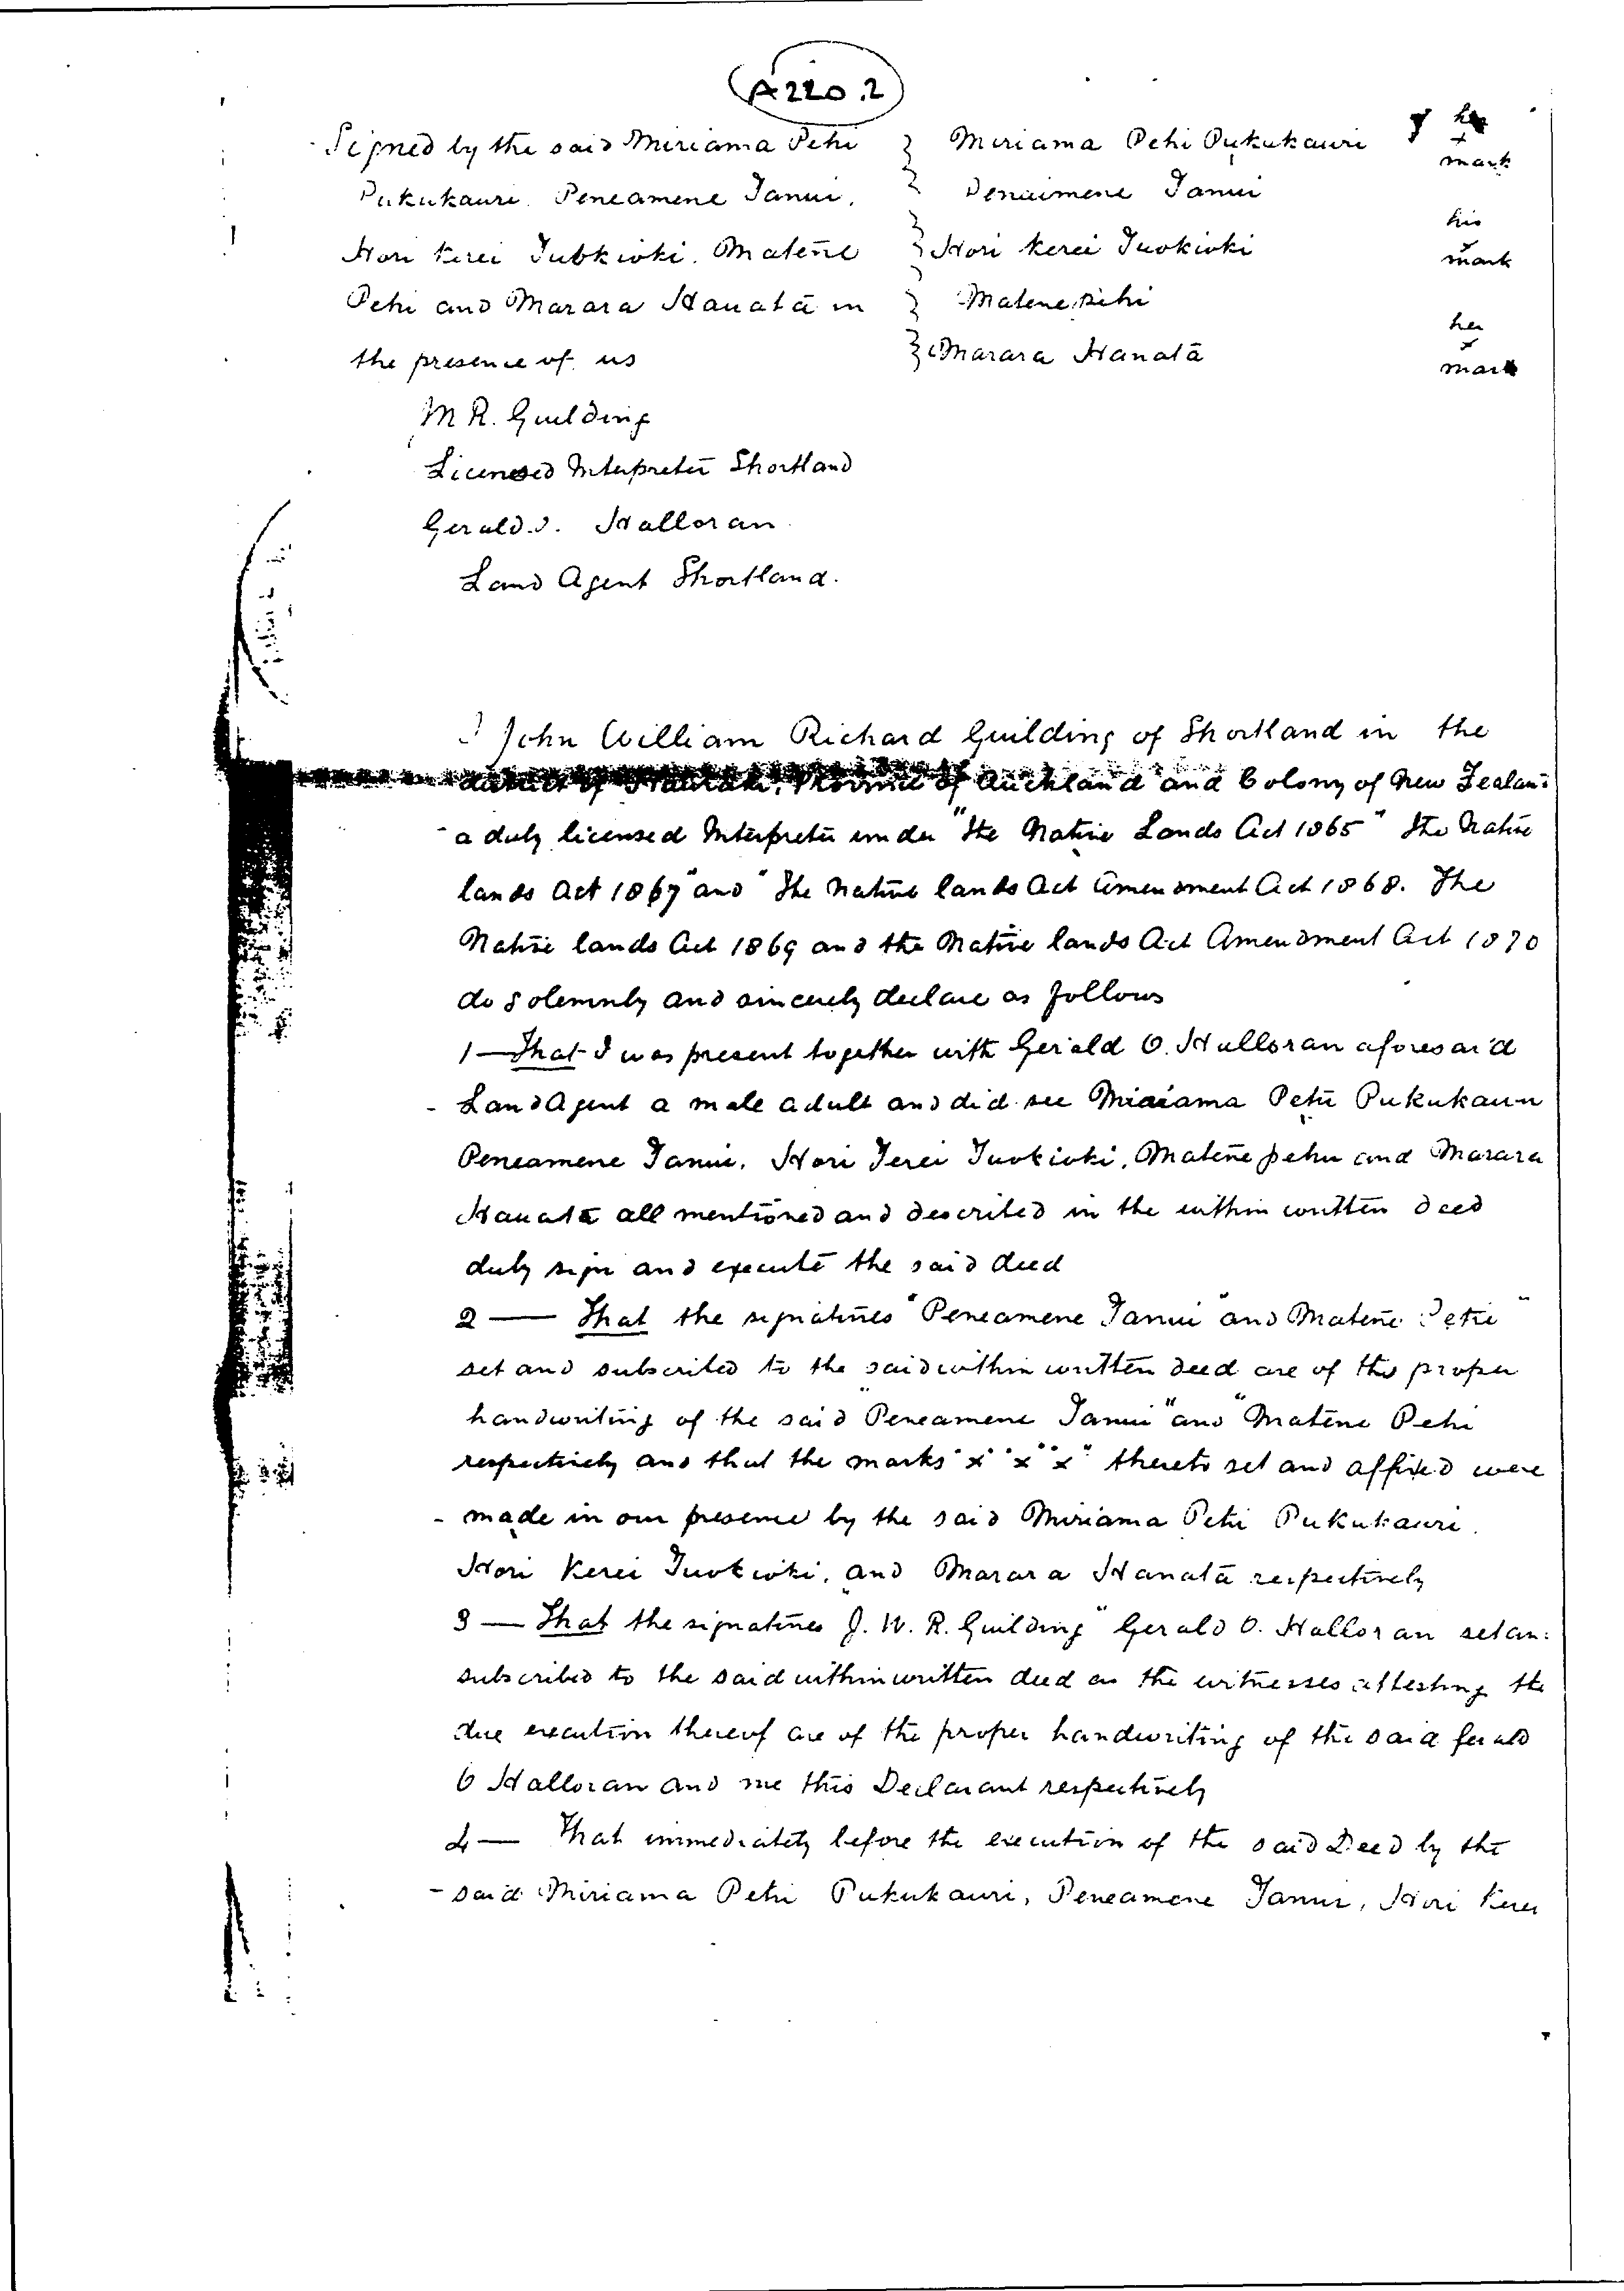 A220.2
Signed by the said Miriama Pehi } Miriama Pehi Pukukauri her x mark
Pukukauri. Peneamene Tanui, } Peneamene Tanui
Hori Kerei Tuokioki. Matene } Hori Kerei Tuokioki his x mark
Pehi and Marara Hanata in } Matene Pihi
the presence of us } Marara Hanata her x mark
M R. Guilding
Licensed Interpreter Shortland
Gerald O. Halloran
Land Agent Shortland.
I John William Richard Guilding of Shortland in the
district of Hauraki, Province of Auckland and Colony of New Zealan:
a duly licensed Interpreter under "the Native Lands Act 1865" the Native
lands Act 1867" and "The Native lands Act Amendment Act 1868. The
Native lands Act 1869 and the Native lands Act Amendment Act 1870
do solemnly and sincerely declare as follows
1 — That I was present together with Gerald O. Halloran aforesaid
Land Agent a male adult and did see Miriama Pehi Pukukauri
Peneamene Tanui, Hori Terei Tuokioki, Matene pehi and Marara
Hanata all mentioned and described in the within written deed
duly sign and execute the said deed
2 — That the signatures "Peneamene Tanui" and Matene Pehi"
set and subscribed to the said within written deed are of the proper
handwriting of the said "Peneamene Tanui" and "Matene Pehi
respectively and that the marks "x" "x" "x" thereto set and affixed were
made in our presence by the said Miriama Pehi Pukukauri.
Hori Kerei Tuokioki, and Marara Hanata respectively
3 — That the signatures "J. W. R. Guilding" Gerald O. Halloran set an:
subscribed to the said within written deed as the witnesses attesting the
due execution thereof are of the proper handwriting of the said Gerald
O Halloran and me this Declarant respectively
4 — That immediately before the execution of the said Deed by the
said Miriama Pehi Pukukauri, Peneamene Tanui, Hori Kerei